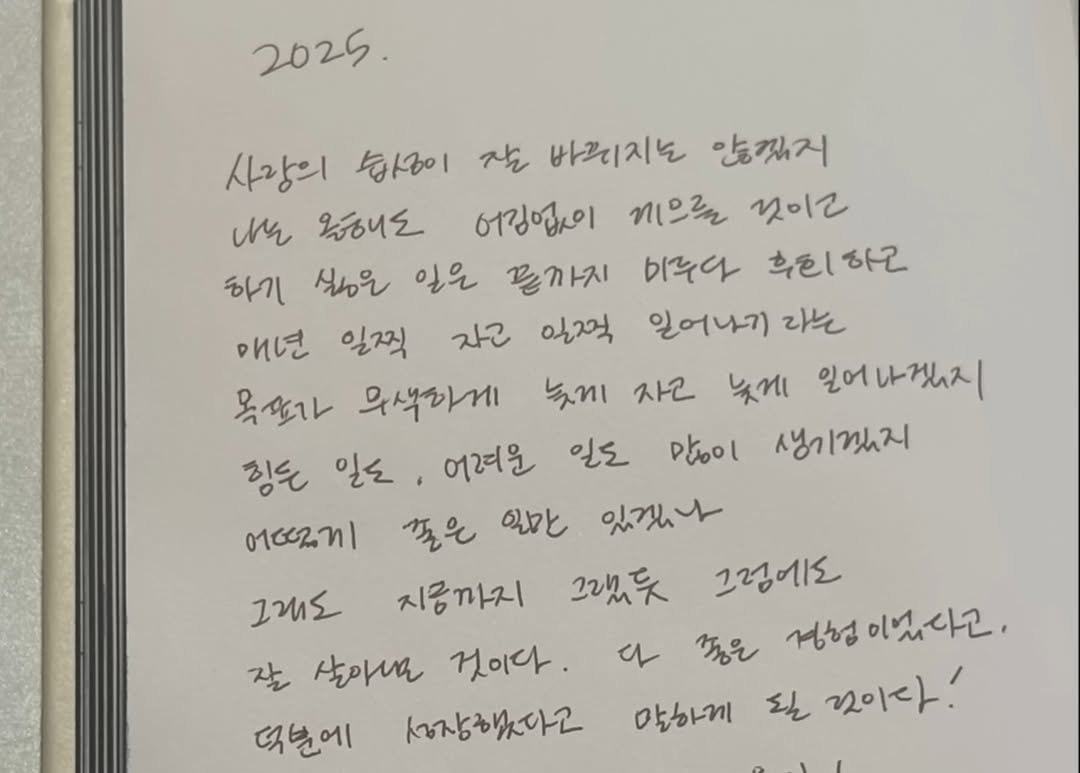 2025.
사람의 습성이 잘 바뀌지는 않겠지
나는 올해도 어김없이 게으를 것이고
하기 싫은 일은 끝까지 미루다 후회하고
매년 일찍 자고 일찍 일어나기라는
목표가 무색하게 늦게 자고 늦게 일어나겠지
힘든 일도, 어려운 일도 많이 생기겠지
어떻게 좋은 일만 있겠나
그래도 지금까지 그랬듯 그럼에도
잘 살아낼 것이다. 다 좋은 경험이었다고,
덕분에 성장했다고 말하게 될 것이다!